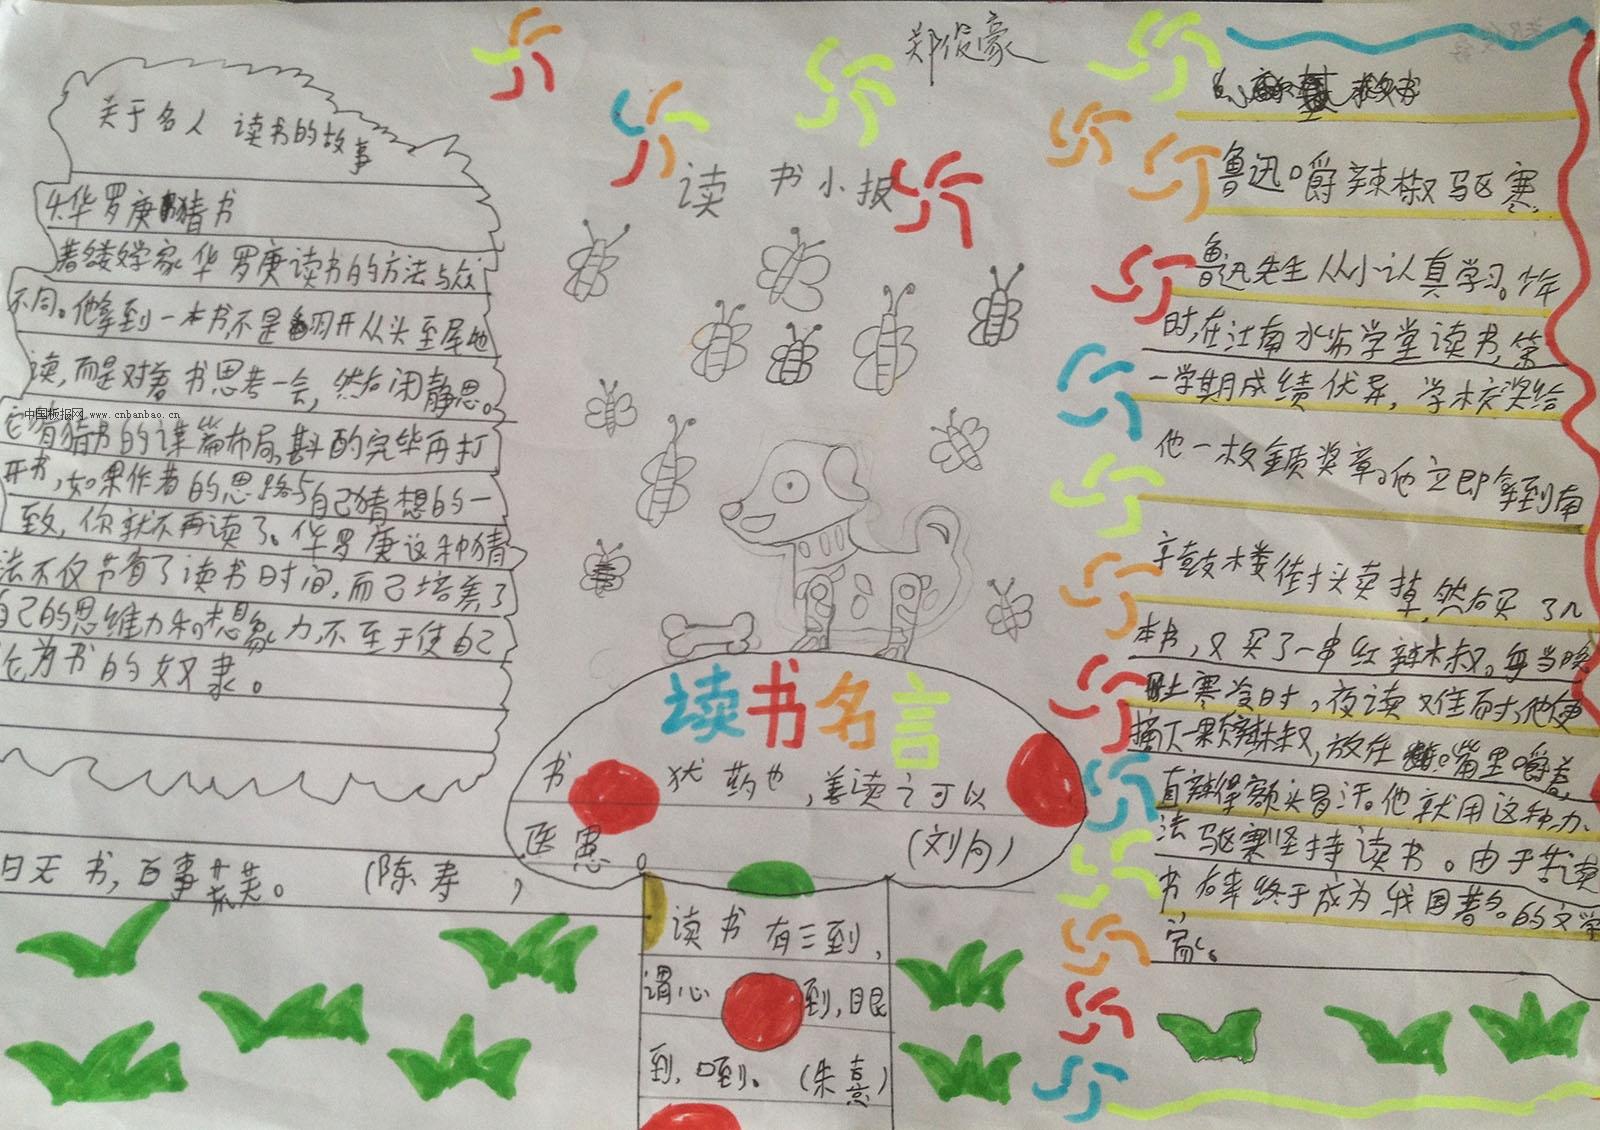 郑俊豪
读书小报
关于名人读书的故事
华罗庚猜书
著名数学家华罗庚读书的方法与众
不同。他拿到一本书,不是翻开从头至尾地
读,而是对着书思考一会,然后闭静思。
猜书的谋篇布局,斟酌完毕再打
开书,如果作者的思路与自己猜想的一
致,你就不再读了。华罗庚这种猜
法不仅节省了读书时间,而己培养了
自己的思维力和想象力,不至于使自己
沦为书的奴隶。
中国板报网 www.cnbanbao.cn
日无书,百事荒芜。(陈寿)
读书名言
书犹药也,善读之可以
医愚。
(刘向)
读书有三到,
谓心到,眼
到,口到。(朱熹)
鲁迅嚼辣椒驱寒
鲁迅先生从小认真学习。少年
时,在江南水师学堂读书,第
一学期成绩优异,学校奖给
他一枚金质奖章。他立即拿到南
京鼓楼街头卖掉,然后买了几
本书,又买了一串红辣椒。每当晚
上寒冷时,夜读难耐,他便
摘下一颗辣椒,放在嘴里嚼着,
直辣得额头冒汗。他就用这种办
法驱寒坚持读书。由于苦读
书 终于成为我国著名的文学
家。